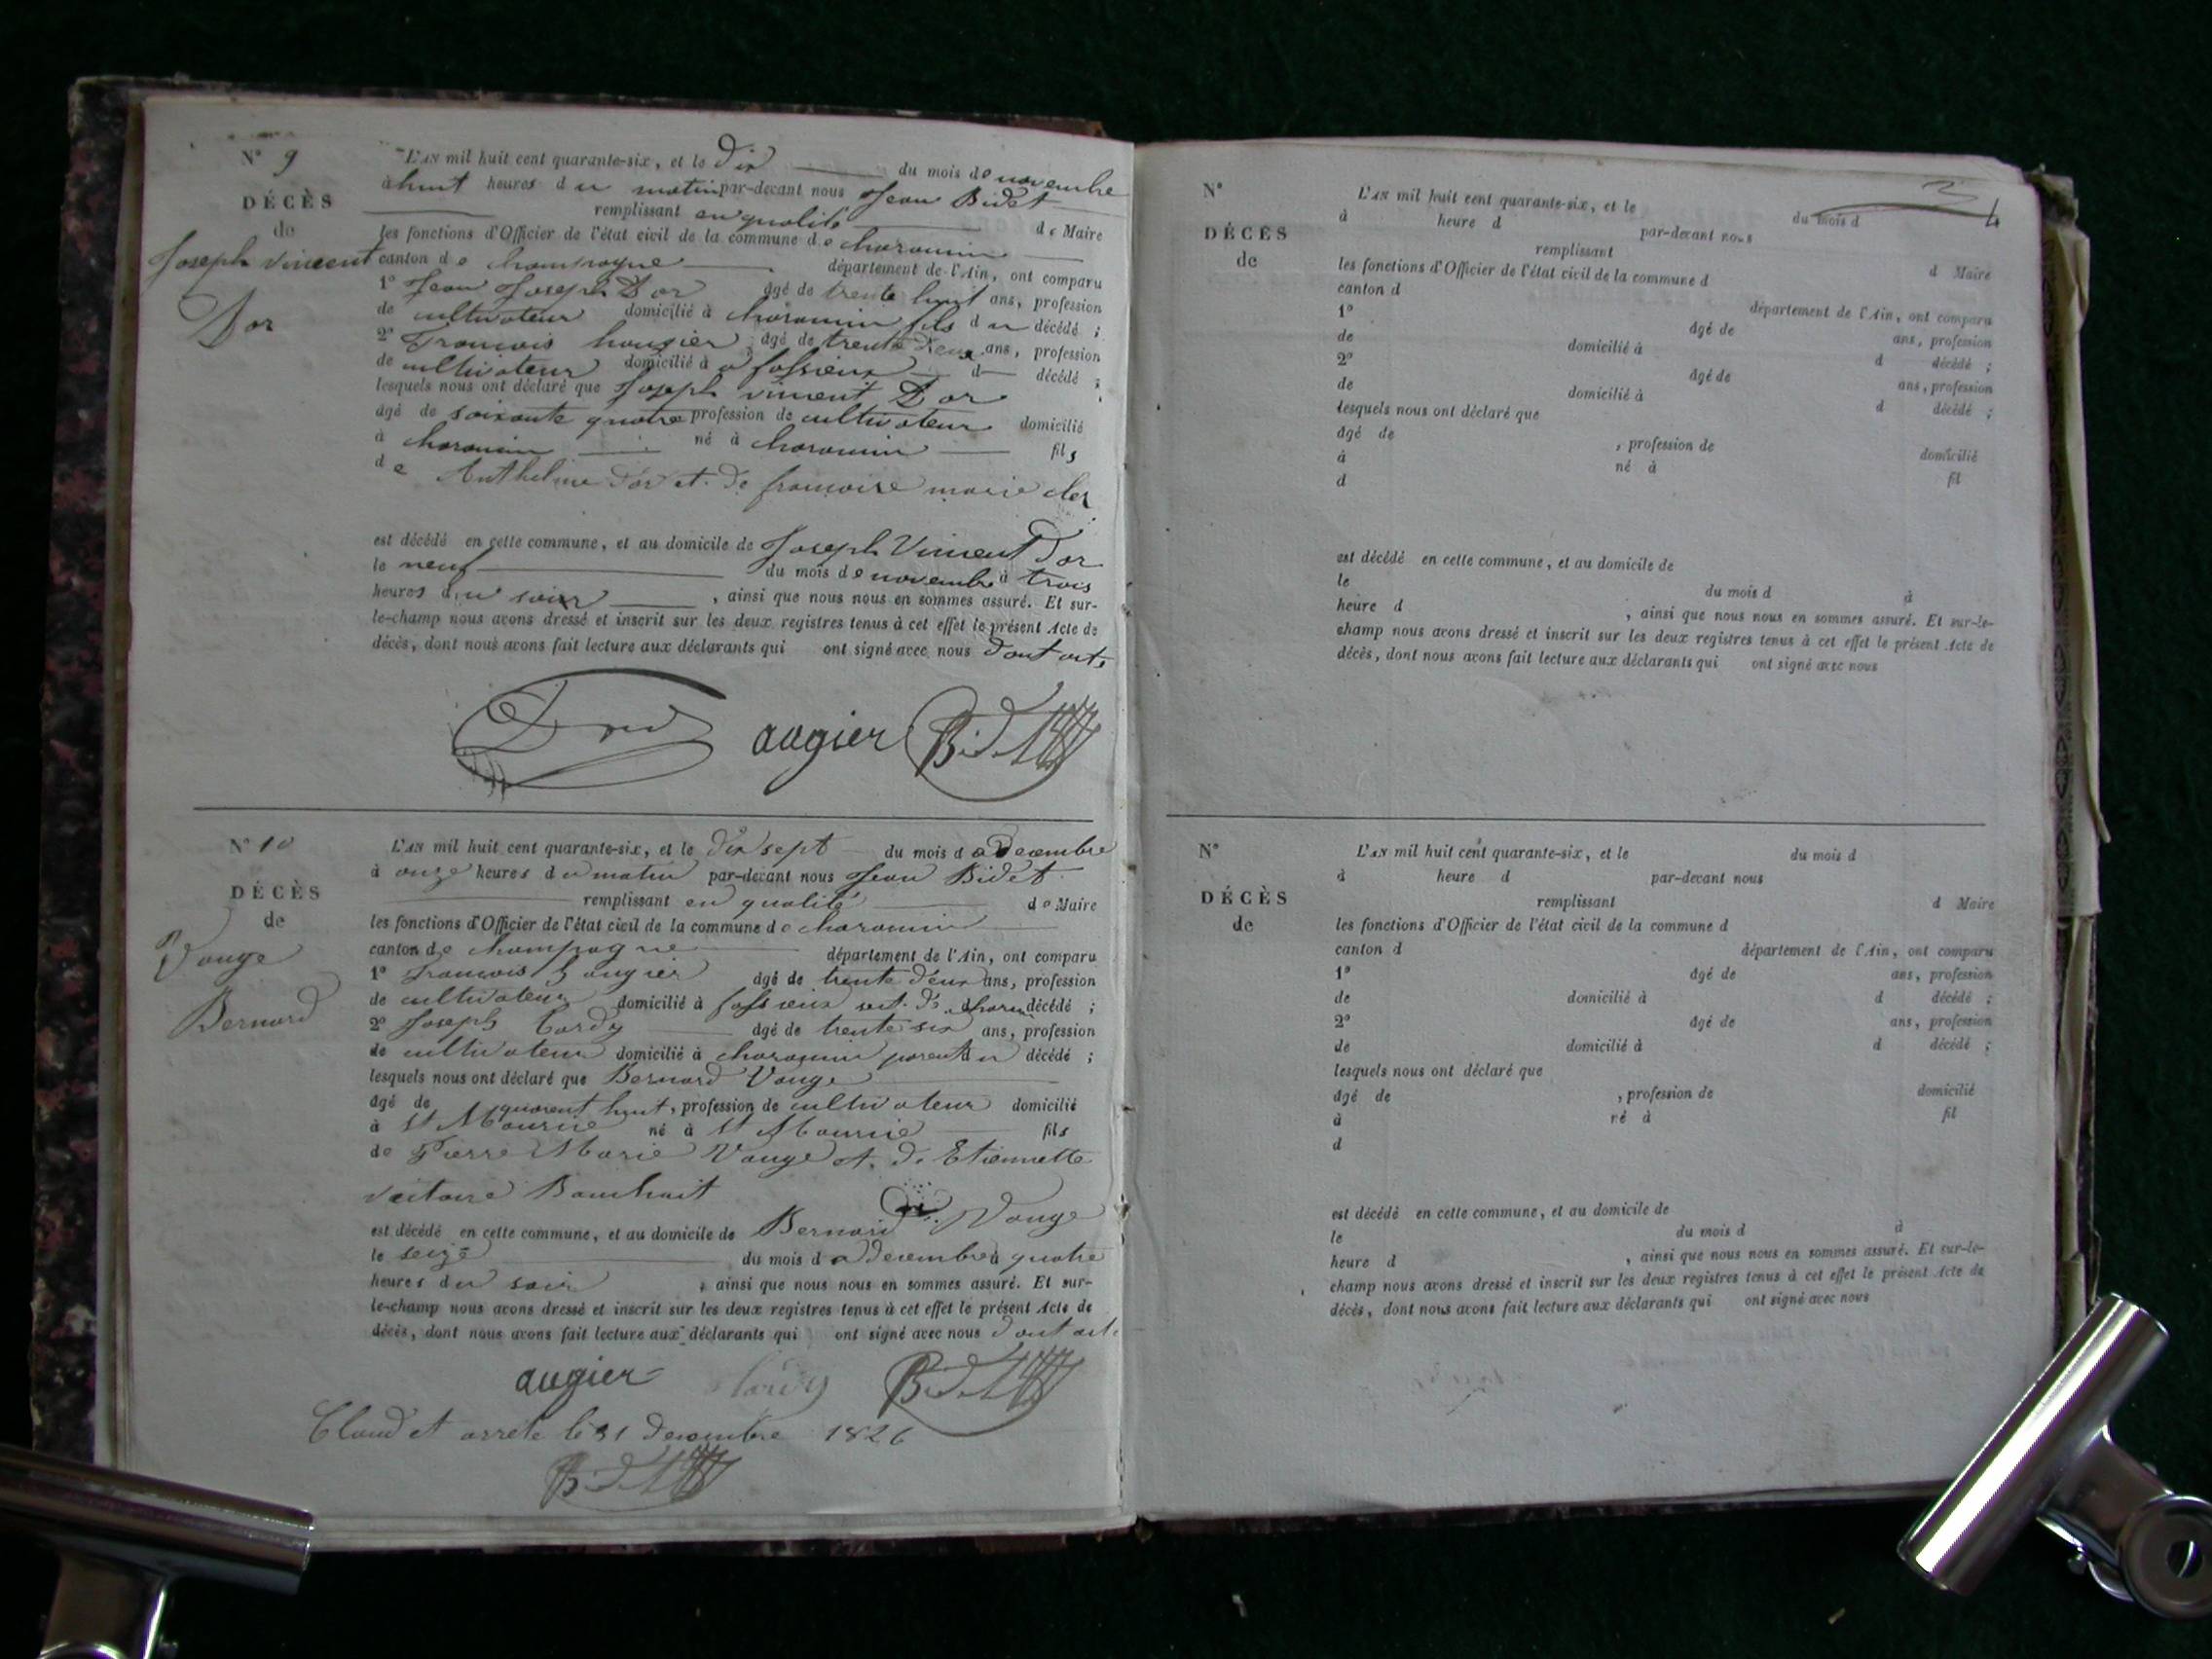 N° 9
DÉCÈS
de
Joseph vincent
Dor
L'AN mil huit cent quarante-six, et le dix du mois de novembre
à huit heures du matin par-devant nous Jean Bidet
remplissant en qualité de Maire
les fonctions d'Officier de l'état civil de la commune de charancin
canton de champagne département de l'Ain, ont comparu
1° Jean Joseph Dor âgé de trente huit ans, profession
de cultivateur domicilié à charancin fils du décédé ;
2° François haugier âgé de trente deux ans, profession
de cultivateur domicilié à fossieux d décédé ;
lesquels nous ont déclaré que Joseph vincent Dor
âgé de soixante quatre profession de cultivateur domicilié
à charancin né à charancin fils
de Anthelme dor et de francoise marie
est décédé en cette commune, et au domicile de Joseph Vincent Dor
le neuf du mois de novembre à trois
heures du soir, ainsi que nous nous en sommes assuré. Et sur-
le-champ nous avons dressé et inscrit sur les deux registres tenus à cet effet le présent Acte de
décès, dont nous avons fait lecture aux déclarants qui ont signé avec nous dont acte
augier Bidet
N° 10
DÉCÈS
de
Vouge
Bernard
L'AN mil huit cent quarante-six, et le dix sept du mois de Decembre
à onze heures du matin par-devant nous Jean Bidet
remplissant en qualité de Maire
les fonctions d'Officier de l'état civil de la commune de charancin
canton de champagne département de l'Ain, ont comparu
1° francois haugier âgé de trente deux ans, profession
de cultivateur domicilié à fossieux décédé ;
2° Joseph Cordy âgé de trente six ans, profession
de cultivateur domicilié à charancin parent du décédé ;
lesquels nous ont déclaré que Bernard Vouge
âgé de quarent huit, profession de cultivateur domicilié
à St Mauricie né à St Mauricie fils
de Pierre Marie Vouge et de Etiennette
est décédé en cette commune, et au domicile de Bernard Vouge
le seize du mois de Decembre à quatre
heures du soir, ainsi que nous nous en sommes assuré. Et sur-
le-champ nous avons dressé et inscrit sur les deux registres tenus à cet effet le présent Acte de
décès, dont nous avons fait lecture aux déclarants qui ont signé avec nous dont acte
augier Cordy Bidet
Cloud et arrete le 31 decembre 1826
Bidet
N°
DÉCÈS
de
L'AN mil huit cent quarante-six, et le du mois d
à heure d par-devant nous
remplissant d Maire
les fonctions d'Officier de l'état civil de la commune d
canton d département de l'Ain, ont comparu
1° âgé de ans, profession
de domicilié à d décédé ;
2° âgé de ans, profession
de domicilié à d décédé ;
lesquels nous ont déclaré que
âgé de , profession de domicilié
à né à fil
d
est décédé en cette commune, et au domicile de
le du mois d à
heure d , ainsi que nous nous en sommes assuré. Et sur-le-
champ nous avons dressé et inscrit sur les deux registres tenus à cet effet le présent Acte de
décès, dont nous avons fait lecture aux déclarants qui ont signé avec nous
N°
DÉCÈS
de
L'AN mil huit cent quarante-six, et le du mois d
à heure d par-devant nous
remplissant d Maire
les fonctions d'Officier de l'état civil de la commune d
canton d département de l'Ain, ont comparu
1° âgé de ans, profession
de domicilié à d décédé ;
2° âgé de ans, profession
de domicilié à d décédé ;
lesquels nous ont déclaré que
âgé de , profession de domicilié
à né à fil
d
est décédé en cette commune, et au domicile de
le du mois d à
heure d , ainsi que nous nous en sommes assuré. Et sur-le-
champ nous avons dressé et inscrit sur les deux registres tenus à cet effet le présent Acte de
décès, dont nous avons fait lecture aux déclarants qui ont signé avec nous